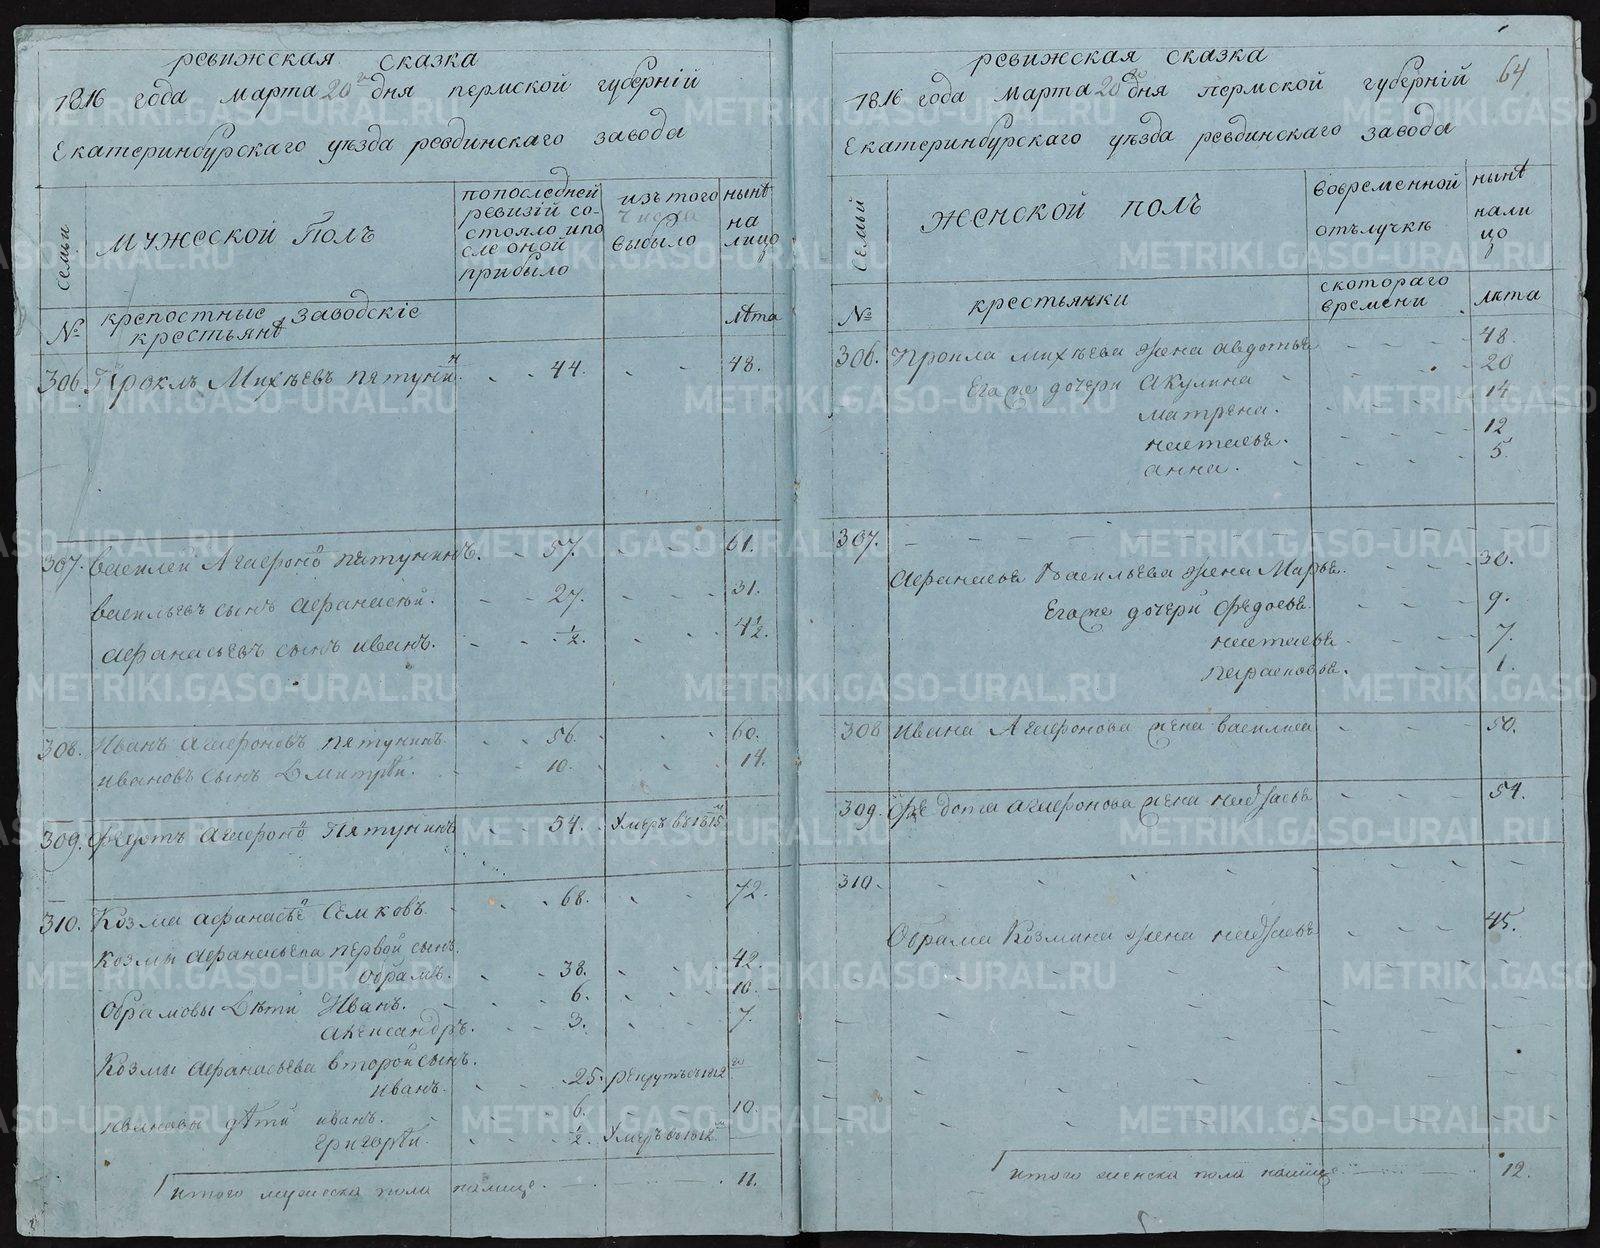 ревижская сказка
1816 года марта 20го дня пермской губерній
Екатеринбурскаго уѣзда ревдинскаго завода
Семьи
мужеской полъ
попоследней ревизій со-
стояло ипо
сле оной
прибыло
изъ того
числа
выбыло
нынѣ
на
лицо
№
крепостные заводскіе
крестьянѣ
лѣта
306. Проклъ Михѣевъ пятунинъ. 44. 48.
307. василей Агафоновъ пятунинъ. 57. 61.
васильевъ сынъ афанасей. 27. 31.
афанасьевъ сынъ иванъ. 1/2. 4 1/2.
308. Иванъ агафоновъ пятунинъ 56. 60.
ивановъ сынъ Дмитрѣй. 10. 14.
309. федотъ агафоновъ Пятунинъ 54. Умеръ въ 1815м
310. Козма афанасьевъ Семковъ. 68. 72.
Козмы афанасьева первой сынъ.
обрамъ. 38. 42.
обрамовы Дѣти Иванъ. 6. 10.
александръ. 3. 7.
Козмы афанасьева второй сынъ.
иванъ. 25. рекрутъ въ 1812го
ивановы дѣти иванъ. 6. 10.
григорѣй. 1/2. Умеръ въ 1812м
итого мужеска пола налицо. 11.
64
ревижская сказка
1816 года марта 20го дня пермской губерній
Екатеринбурскаго уѣзда ревдинскаго завода
Семьй
женской полъ
вовременной
отълучкѣ
нынѣ
нали
цо
№
крестьянки
скотораго
времени
лѣта
306. Прокла михѣева жена авдотья 48.
Егоже дочери акулина 20
матрена. 14
настасья. 12
анна. 5.
307.
Афанасья Васильева жена Марья. 30.
Егоже дочери федосья. 9.
настасья 7.
парасковья. 1.
308 ивана Агафонова жена василиса 50.
309. федота агафонова жена надѣжда 54.
310.
Обрама Козмина жена надѣжда 45.
итого женска пола налицо 12.
METRIKI.GASO-URAL.RU